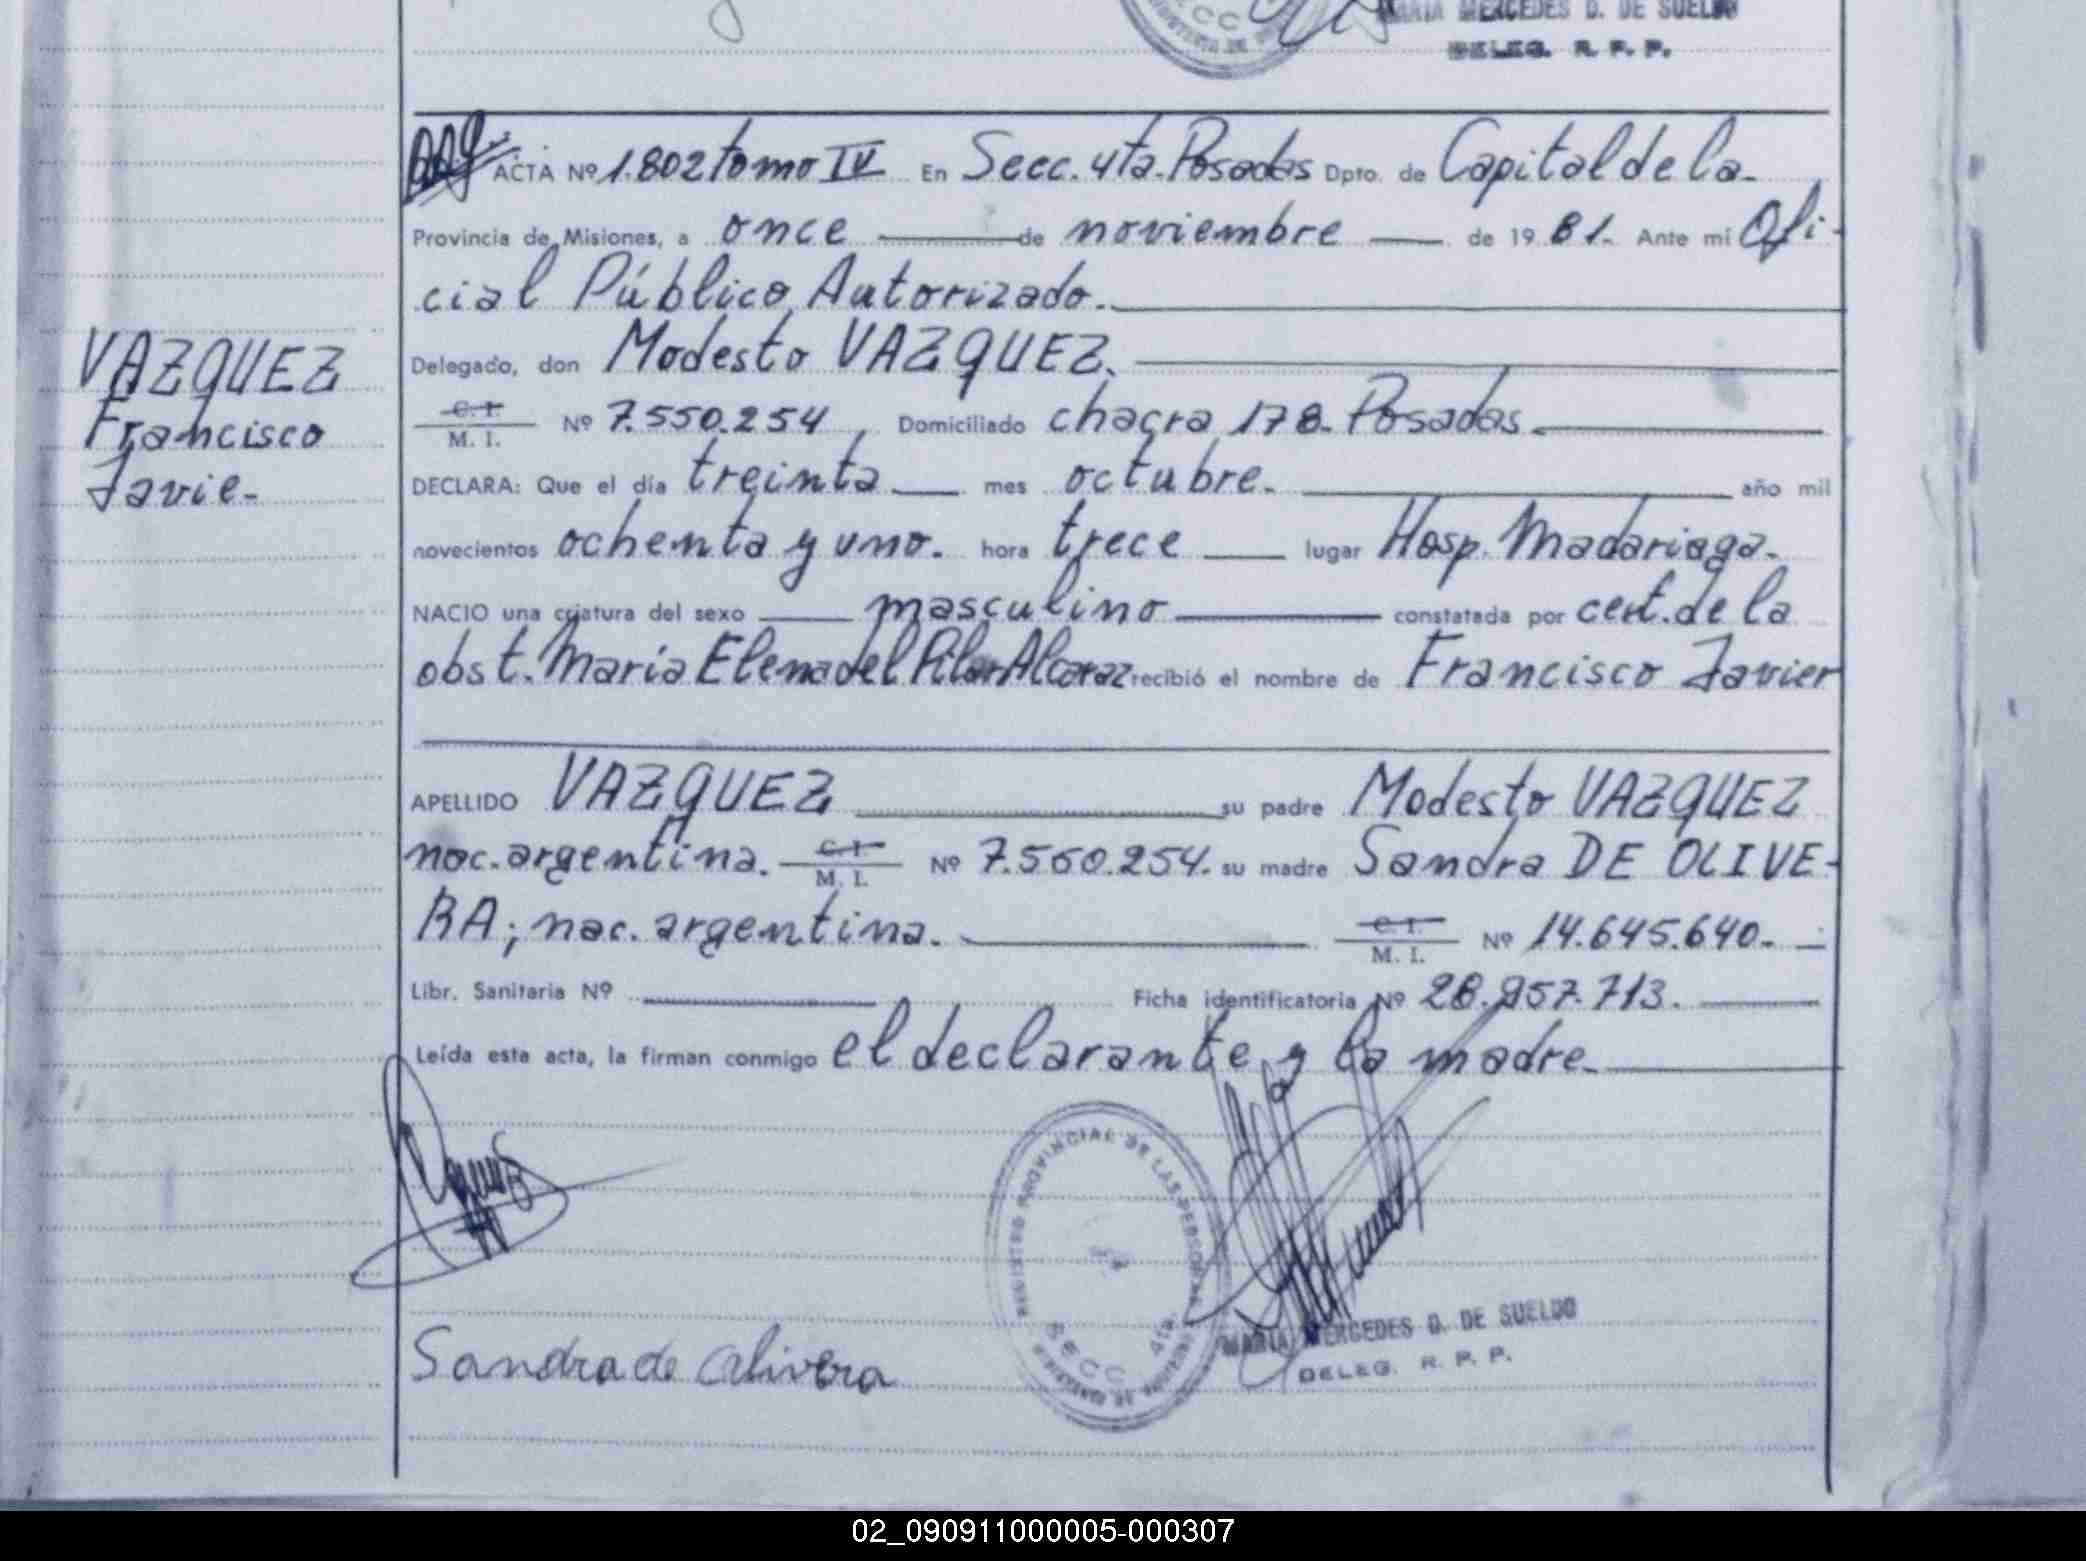 MARIA MERCEDES D. DE SUELDO
DELEG. R. P. P.
ACTA Nº 1.802 tomo IV En Secc. 4ta. Posadas Dpto. de Capital de la
Provincia de Misiones, a once de noviembre de 1981. Ante mi Ofi-
cial Público Autorizado.
Delegado, don Modesto VAZQUEZ.
C. I.
M. I. Nº 7.550.254, Domiciliado chacra 178. Posadas.
VAZQUEZ
Francisco
Javie-
DECLARA: Que el día treinta mes octubre. año mil
novecientos ochenta y uno. hora trece lugar Hosp. Madariaga.
NACIO una criatura del sexo masculino constatada por cert. de la
obst. Maria Elena del Pilar Alcaraz recibió el nombre de Francisco Javier
APELLIDO VAZQUEZ su padre Modesto VAZQUEZ
nac. argentina. C. I. M. I. Nº 7.560.254. su madre Sandra DE OLIVE-
RA; nac. argentina. C. I. M. I. Nº 14.645.640.
Libr. Sanitaria Nº Ficha identificatoria Nº 28.957.713.
Leída esta acta, la firman conmigo el declarante y la madre.
REGISTRO PROVINCIAL DE LAS PERSONAS
SECC. 4ta.
MARIA MERCEDES D. DE SUELDO
DELEG. R. P. P.
Sandra de Olivera
02_090911000005-000307